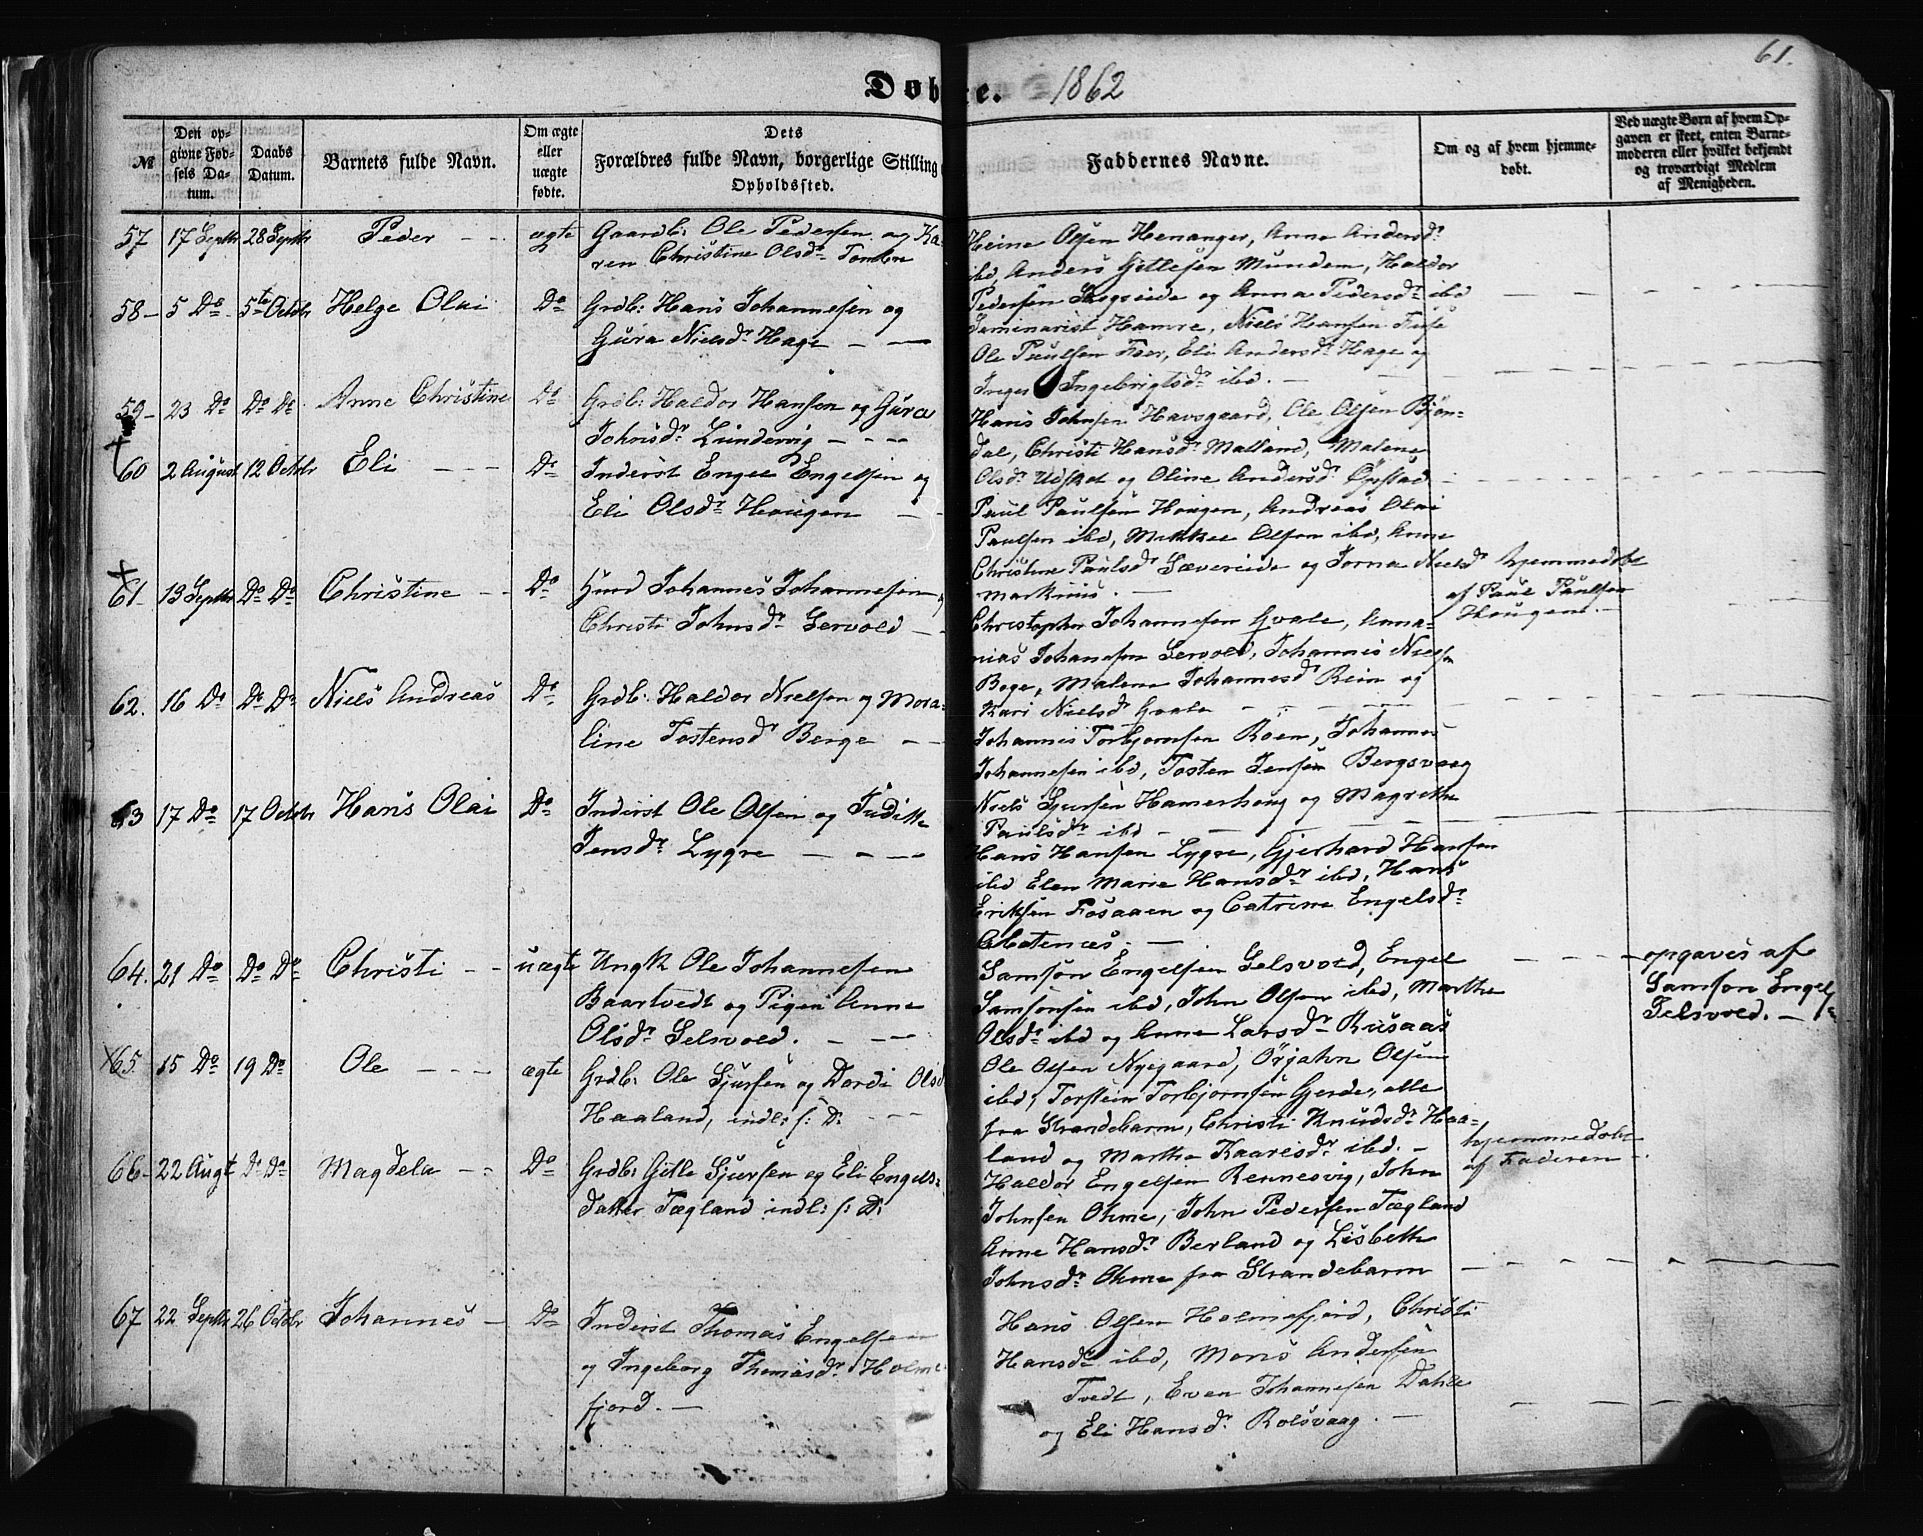 61.
Døbte. 1862
№
Den op-
givne Fød-
sels Da-
tum.
Daabs
Datum.
Barnets fulde Navn.
Om ægte
eller
uægte
fødte.
Dets
Forældres fulde Navn, borgerlige Stilling
Opholdssted.
Faddernes Navne.
Om og af hvem hjemme-
døbt.
Ved uægte Børn af hvem Op-
gaven er skeet, enten Barne-
moderen eller hvilket bekjendt
og troværdigt Medlem
af Menigheden.
57 17 Septbr 28 Septbr Peder - - ægte Gaardb: Ole Pedersen og Ka-
ren Christine Olsdr
Heine Olsen Henanger, Anna Andersdr
ibd, Anders Gitlesen Mundem, Haldor
Pedersen Skogseide og Anna Pedersdr ibd
58 - 5 Do 5te Octobr Helge Olai Do Grdb: Hans Johannesen og
Gura Nielsdr Hage - -
Seminarist Hamre, Niels Hansen Fuse
Ole Paulsen Foer, Eli Andersdr Hage og
Ingebrigtsdr ibd. -
59 - 23 Do Do Do Anne Christine Do Grdb: Haldor Hansen og Gura
Johnsdr Lundervig - - -
Hans Johnsen Havsgaard, Ole Olsen Bjøn-
dal, Christi Hansdr Malland, Malene
Olsdr Udskot og Oline Andersdr Øpstad
60 2 August 12 Octobr Eli - - - Do Inderst Engel Engelsen og
Eli Olsdr Hougen - -
Paul Paulsen Hougen, Andreas Olai
Paulsen ibd, Mikkel Olsen ibd, Anna
Christine Paulsdr Sævereide og Jorna Nielsdr
Markhuus. -
hjemmedøbt
af Paul Paulsen
Hougene. -
61 - 13 Septbr Do Do Christine - - Do Huusd Johannes Johannesen,
Christi Johnsdr Servold - -
Christopher Johannesen Hvale, Anna-
nias Johanesen Servold, Johannes Nielsen
Boge, Malene Johannesdr Rein og
Kari Nielsdr Hvale - - -
62. 16 Do Do Do Niels Andreas Do Grdb: Haldor Nielsen og Mora-
line Tostensdr Berge - -
Johannes Torbjørnsen Røen, Johannes
Johannesen ibd, Tosten Jensen Bergsvaag
Niels Sjursen Hamerhoug og Magrethe
Paulsdr ibd -
63 17 Do 17 Octobr Hans Olai Do Inderst Ole Olsen og Juditte
Jensdr Lygre - - -
Hans Hansen Lygre, Gjerhard Hansen
ibd Elen Marie Hansdr ibd, Hans
Eriksen Fosaaen og Catrine Engelsdr
64. 21 Do Do Do Christi - - uægte Ungk Ole Johannesen
Baartvedt og Pigen Anne
Olsdr Selsvold. - - -
Samson Engelsen Selsvold, Engel
Samsonsen ibd, John Olsen ibd, Marthe
Olsdr ibd og Anne Larsdr Rusaas
opgaves af
Samson Engels
Selsvold. -
65. 15 Do 19 Do Ole - - - ægte Grdb: Ole Sjursen og Dordi Olsd
Haaland, indl: f: D. - - -
Ole Olsen Nygaard, Ørjahn Olsen
ibd, Torstein Torbjørnsen Gjerde, alle
fra Strandebarm, Christi Knudsdr Haa-
land og Martha Kaaresdr ibd. -
hjemmedøbt
af Faderen -
66 - 22 Augt Do Do Magdela - - Do Grdb: Gitle Sjursen og Eli Engels-
datter Tægland indl: f: D:
Haldor Engelsen Rennesvig, John
Johnsen Ohme, John Pedersen Tægland
Anne Hansdr Berland og Lisbeth
Johnsdr Ohme fra Strandebarm
67 22 Septbr 26 Octobr Johannes - Do Inderst Thomas Engelsen
og Ingeborg Thomasdr Holme-
fjord. -
Hans Olsen Holmefjord, Christi
Hansdr ibd, Mons Andersen
Tvedt, Even Johannesen Dahle
og Eli Hansdr Rolsvaag. -